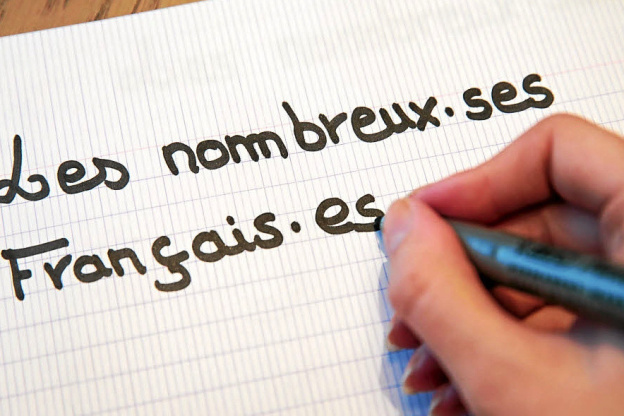 Les nombreux.ses
Français.es